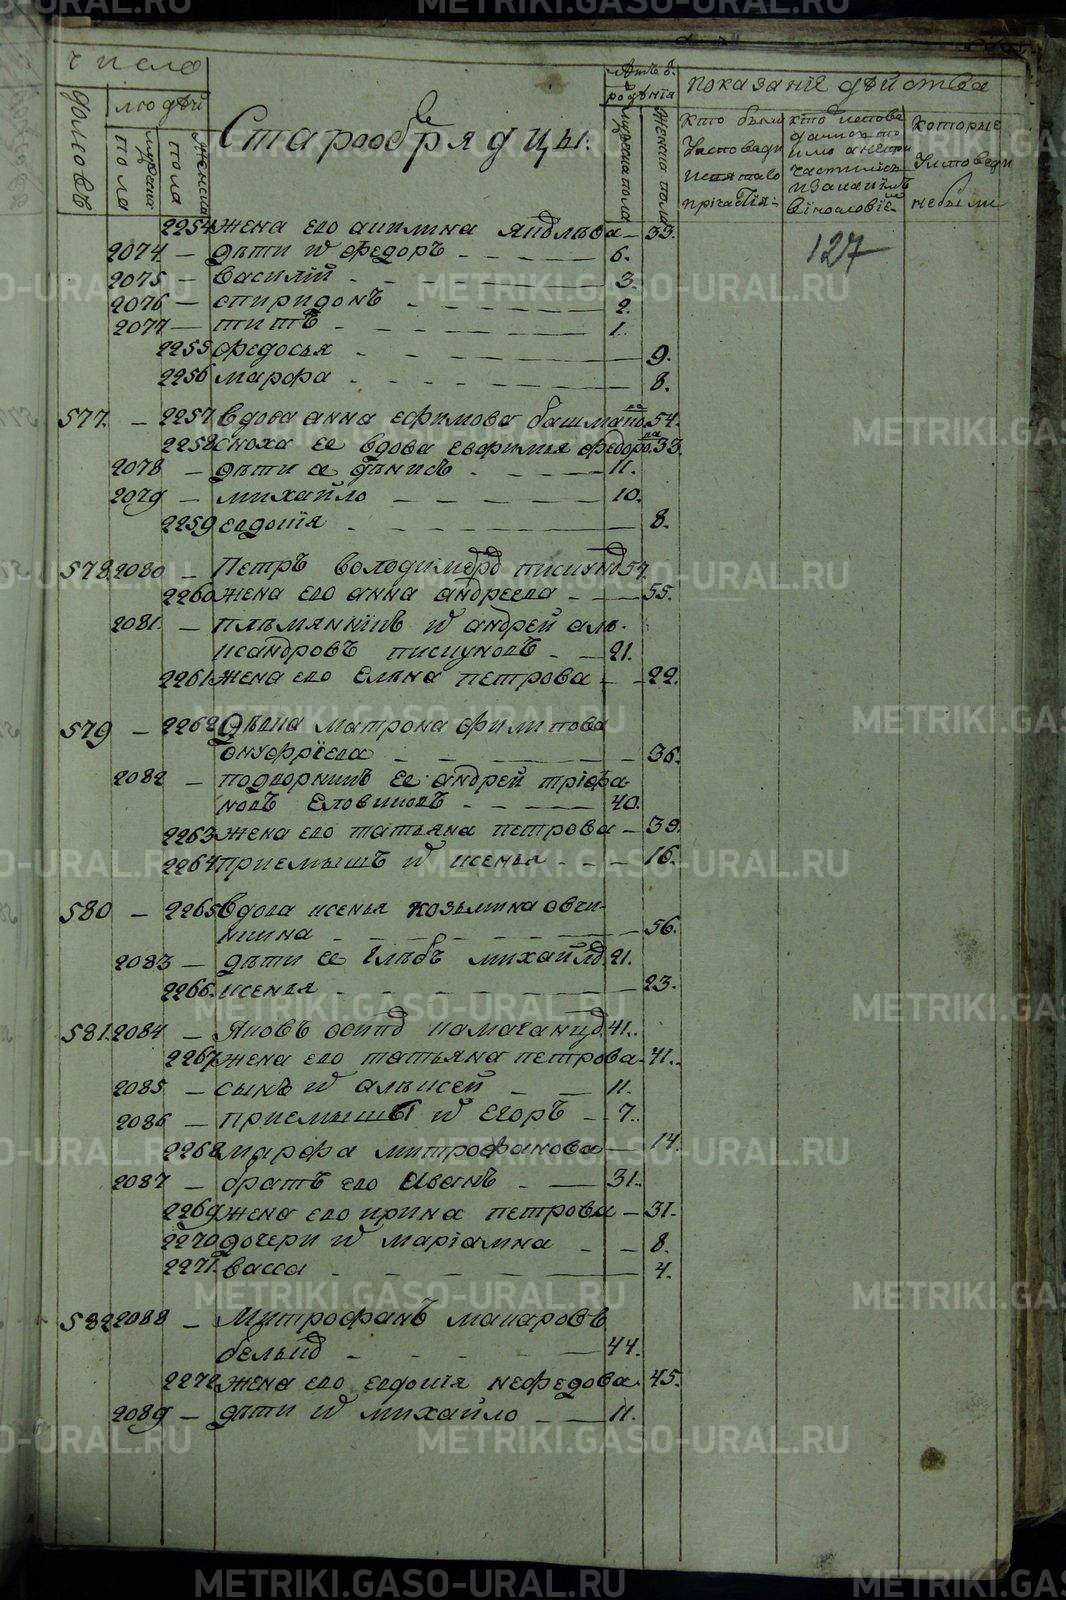 число
домовъ
людей
мужеска пола
женска пола
Старообрядцы.
лѣтъ ѿ рожденiя
мужеска пола
женска пола
показанiе дѣйства
кто были
у исповеди
и святаго
причастiя
которые
у исповеди
небыли
127
2254 жена его акилина яковлева — 33.
2074 — дѣти ихъ федоръ — 6.
2075 — василiй — 3.
2076 — спиридонъ — 2.
2077 — титъ — 1.
2255 федосья — 9.
2256 марфа — 8.
577. — 2257 вдова анна ефимова башмакова 54.
2258 сноха ее вдова евфимья федорова 33.
2078 — дѣти ее денисъ — 11.
2079 — михайло — 10.
2259 евдокiя — 8.
578. 2080 — Петръ володимеровъ пискуновъ 57.
2260 жена его анна андреева — 55.
2081. — плѣмянникъ ихъ андрей алѣ-
ксандровъ пискуновъ — 21.
2261 жена его Елѣна петрова — 22.
579 — 2262 Дѣвка матрона филипова
Онуфрiева — 36.
2082 — подворникъ ее андрей трiфо-
новъ Еловиковъ — 40.
2263 жена его татьяна петрова — 39.
2264 приемышъ ихъ ксенья — 16.
580 — 2265 вдова ксенья козьмина овчи-
никина — 56.
2083 — дѣти ее Глѣбъ михайловъ 21.
2266. ксенья — 23.
581. 2084 — Яковъ осиповъ камаганцовъ 41.
2267 жена его татьяна петрова — 41.
2085 — сынъ ихъ алѣксей — 11.
2086 — приемыши ихъ Егоръ — 7.
2268 марфа митрофанова — 14.
2087 — братъ его Иванъ — 31.
2269 жена его ирина петрова — 31.
2270 дочери ихъ марiамна — 8.
2271. васса — 4.
582 2088 — Митрофанъ макаровъ
бельковъ — 44.
2272 жена его евдокiя нефедова. 45.
2089 — дѣти ихъ михайло — 11.
METRIKI.GASO-URAL.RU